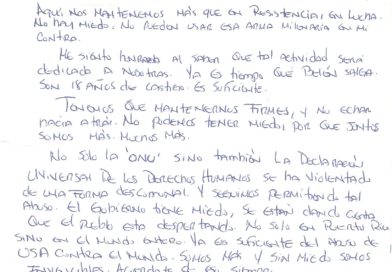 Aquí nos mantenemos más que en Resistencia, en lucha.
No hay miedo, no pueden usar esa arma milenaria en mi
contra.
Me siento honrado al saber que tal actividad será
dedicada a nosotras. Ya es tiempo que Belén salga.
Son 18 años de castigo. Es suficiente.
Tenemos que mantenernos firmes, y no echar
hacia atrás. No podemos tener miedo, por que juntos
somos más. Muchos más.
No solo la "ONU" sino también la Declaración
Universal de los Derechos Humanos se ha violentado
de una forma descomunal. Y seguimos permitiendo tal
abuso. El gobierno tiene miedo, se están dando cuenta
que el pueblo esta despertando. No solo en Puerto Rico
sino en el mundo entero. Ya es suficiente del abuso de
USA contra el mundo. Somos más y sin miedo somos